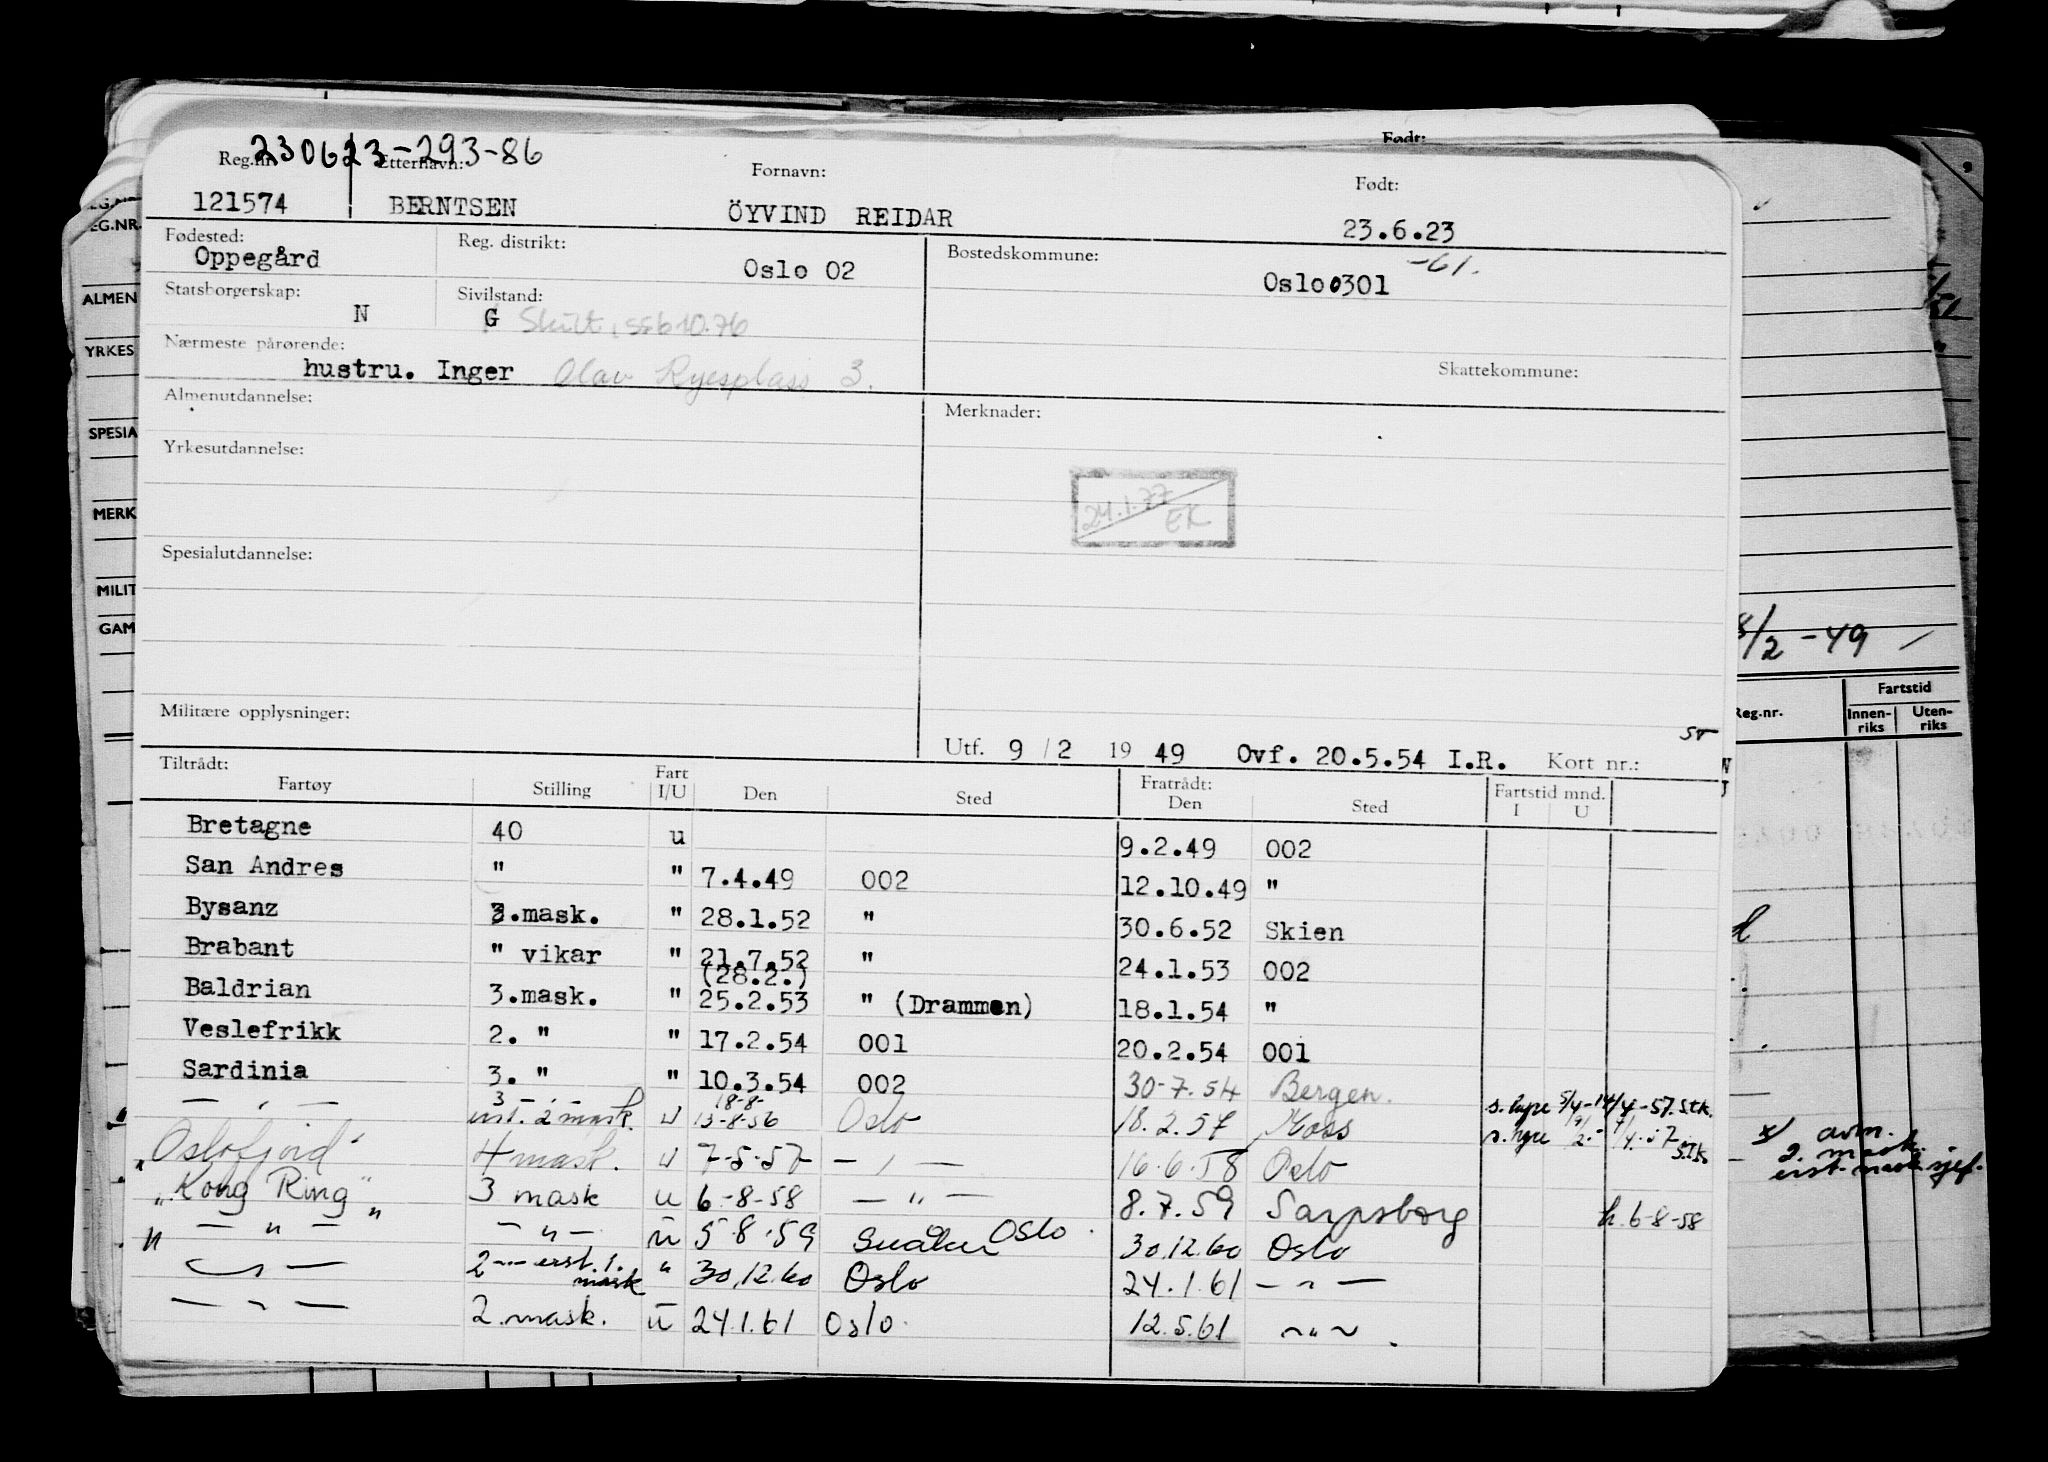 Født:
230623-293-86
Reg.nr. Etternavn: Fornavn: Født:
121574 BERNTSEN ÖYVIND REIDAR 23.6.23
Fødested: Reg. distrikt: Bostedskommune: -61.
Oppegård Oslo 02 Oslo 0301
Statsborgerskap: Sivilstand:
N G Skilt, ssb 10.76
Nærmeste pårørende: Skattekommune:
hustru. Inger Olav Ryesplass 3.
Almenutdannelse: Merknader:
Yrkesutdannelse:
24.1.77
EK
Spesialutdannelse:
Militære opplysninger:
Utf. 9/2 1949 Ovf. 20.5.54 I.R. Kort nr.:
Tiltrådt: Fratrådt: Fartstid mnd.
Fartøy Stilling Fart I/U Den Sted Den Sted I U
Bretagne 40 u 9.2.49 002
San Andres " " 7.4.49 002 12.10.49 "
Bysanz 3.mask. " 28.1.52 " 30.6.52 Skien
Brabant " vikar " 21.7.52 " 24.1.53 002
(28.2.)
Baldrian 3.mask. " 25.2.53 " (Drammen) 18.1.54 "
Veslefrikk 2. " " 17.2.54 001 20.2.54 001
Sardinia 3. " " 10.3.54 002 30-7.54 Bergen.
— " — 3 — " — 18-8-
erst. 2 mask. u 13-8-56 Oslo 18.2.57 Moss
"Oslofjord" 4 mask. u 7-5-57 — " — 16.6.58 Oslo
"Kong Ring" 3 mask u 6-8-58 — " — 8.7.59 Sarpsborg h. 6-8-58
" — " — — " — u 5.8.59 Oslo 30.12.60 Oslo
— " — 2 — " — erst. 1. mask " 30.12.60 Oslo 24.1.61 — " —
— " — 2.mask. u 24.1.61 Oslo. 12.5.61 — " —
EG.NR.
ALMEN
YRKES
SPESIA
MERK
MILIT
GAM
8/2 -49
Fartstid
Reg.nr. Innen-riks Uten-riks
x/ avm.
2. mask.
erst. maskinsjef.